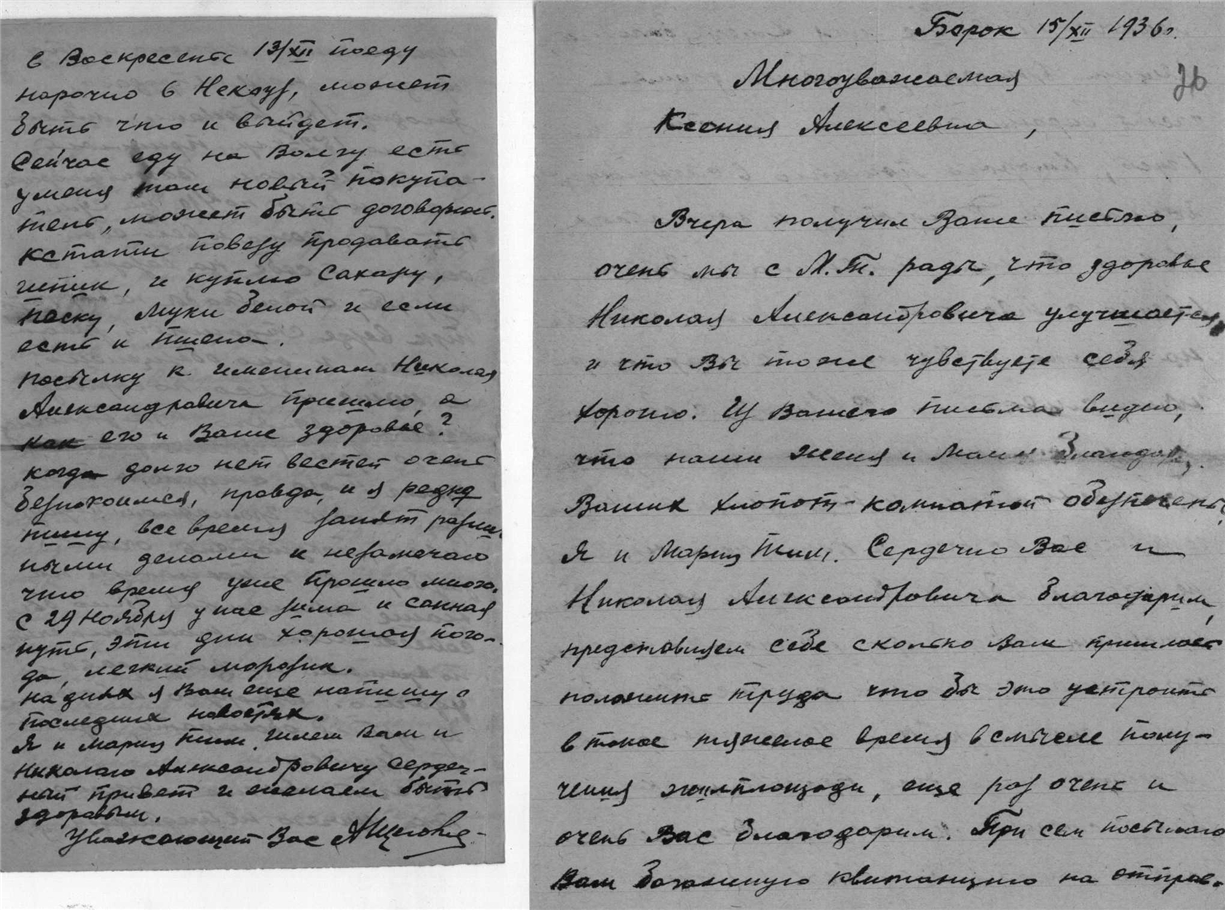 в Воскресенье 13/XII поеду
нарочно в Некоуз, может
быть что и выйдет.
Сейчас еду на Волгу есть
у меня там новый покупа-
тель, может быть договорюсь.
кстати повезу продавать
и куплю Сахару,
песку, муки белой и если
есть и пшена.
посылку к именинам Николая
Александровича пришлю, а
как его и Ваше здоровье?
когда долго нет вестей очень
безпокоимся, правда, и я редко
пишу, все время занят разны-
ными делами и незамечаю
что время уже прошло много.
С 29 Ноября у нас зима и санная
путь, эти дни хорошая пого-
да, легкий морозик.
на днях я Вам еще напишу о
последних новостях.
Я и Мария Тим. шлем Вам и
Николаю Александровичу Сердеч-
ный привет и желаем быть
здоровым.
Уважающий Вас
Борок 15/XII 1936 г.
Многоуважаемая
26
Ксения Алексеевна,
Вчера получил Ваше письмо,
очень мы с М. Т. рады, что здоровье
Николая Александровича улучшается,
и что Вы тоже чувствуете себя
хорошо. Из Вашего письма видно,
что наши Женя и благодар.
Ваших хлопот - комнатой обезпечены,
Я и Мария Тим. Сердечно Вас и
Николая Александровича благодарим,
представляем себе сколько Вам пришлось
положить труда что бы это устроить
в такое тяжелое время в смысле полу-
чения жилплощади, еще раз очень и
очень Вас благодарим. При сем посылаю
Вам багажную квитанцию на отправ-